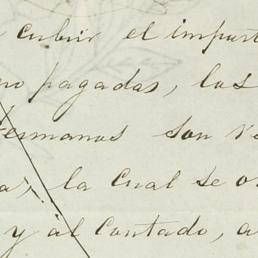 cubrir el import
no pagadas, los
ermanos son r
la cual se o
y al contado, a